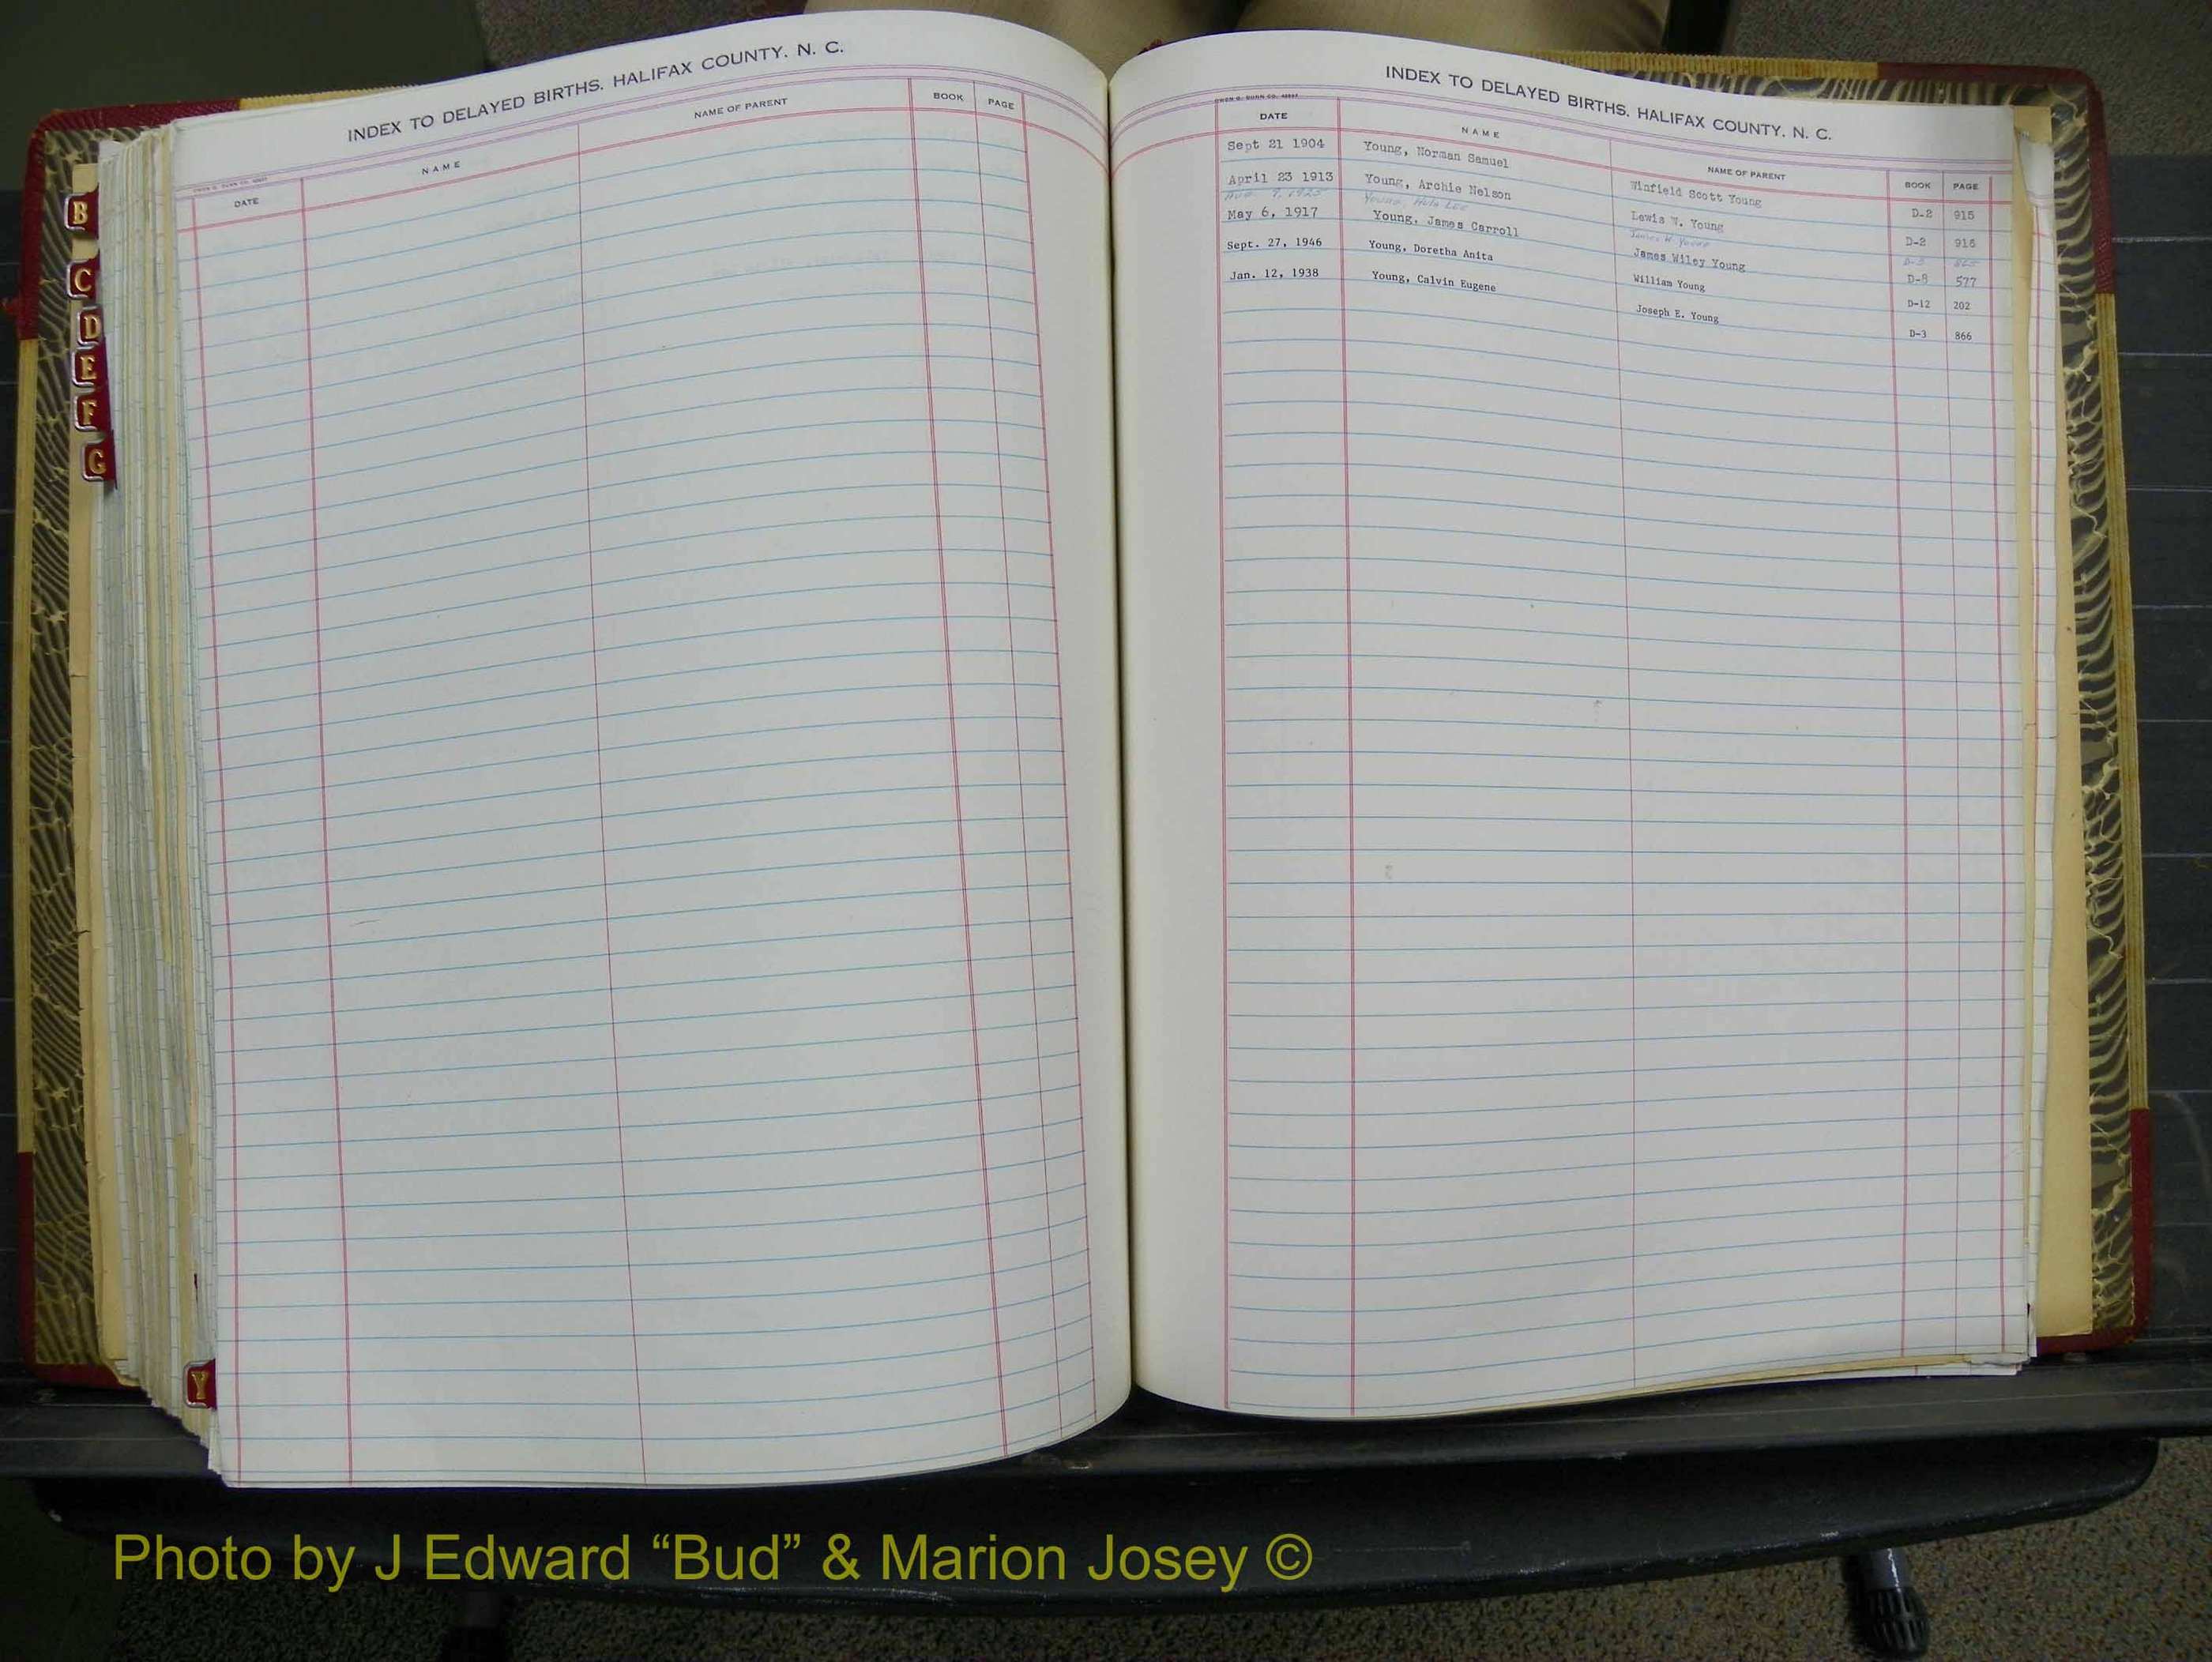 INDEX TO DELAYED BIRTHS. HALIFAX COUNTY. N. C.
DATE NAME NAME OF PARENT BOOK PAGE
B
C
D
E
F
G
Y
INDEX TO DELAYED BIRTHS. HALIFAX COUNTY. N. C.
OWEN G. DUNN CO.
DATE NAME NAME OF PARENT BOOK PAGE
Sept 21 1904 Young, Norman Samuel Winfield Scott Young D-2 915
April 23 1913 Young, Archie Nelson Lewis W. Young D-2 916
Aug. 9, 1925 Young, Lee James W. Young
May 6, 1917 Young, James Carroll James Wiley Young D-8 577
Sept. 27, 1946 Young, Doretha Anita William Young D-12 202
Jan. 12, 1938 Young, Calvin Eugene Joseph E. Young D-3 866
Photo by J Edward “Bud” & Marion Josey ©